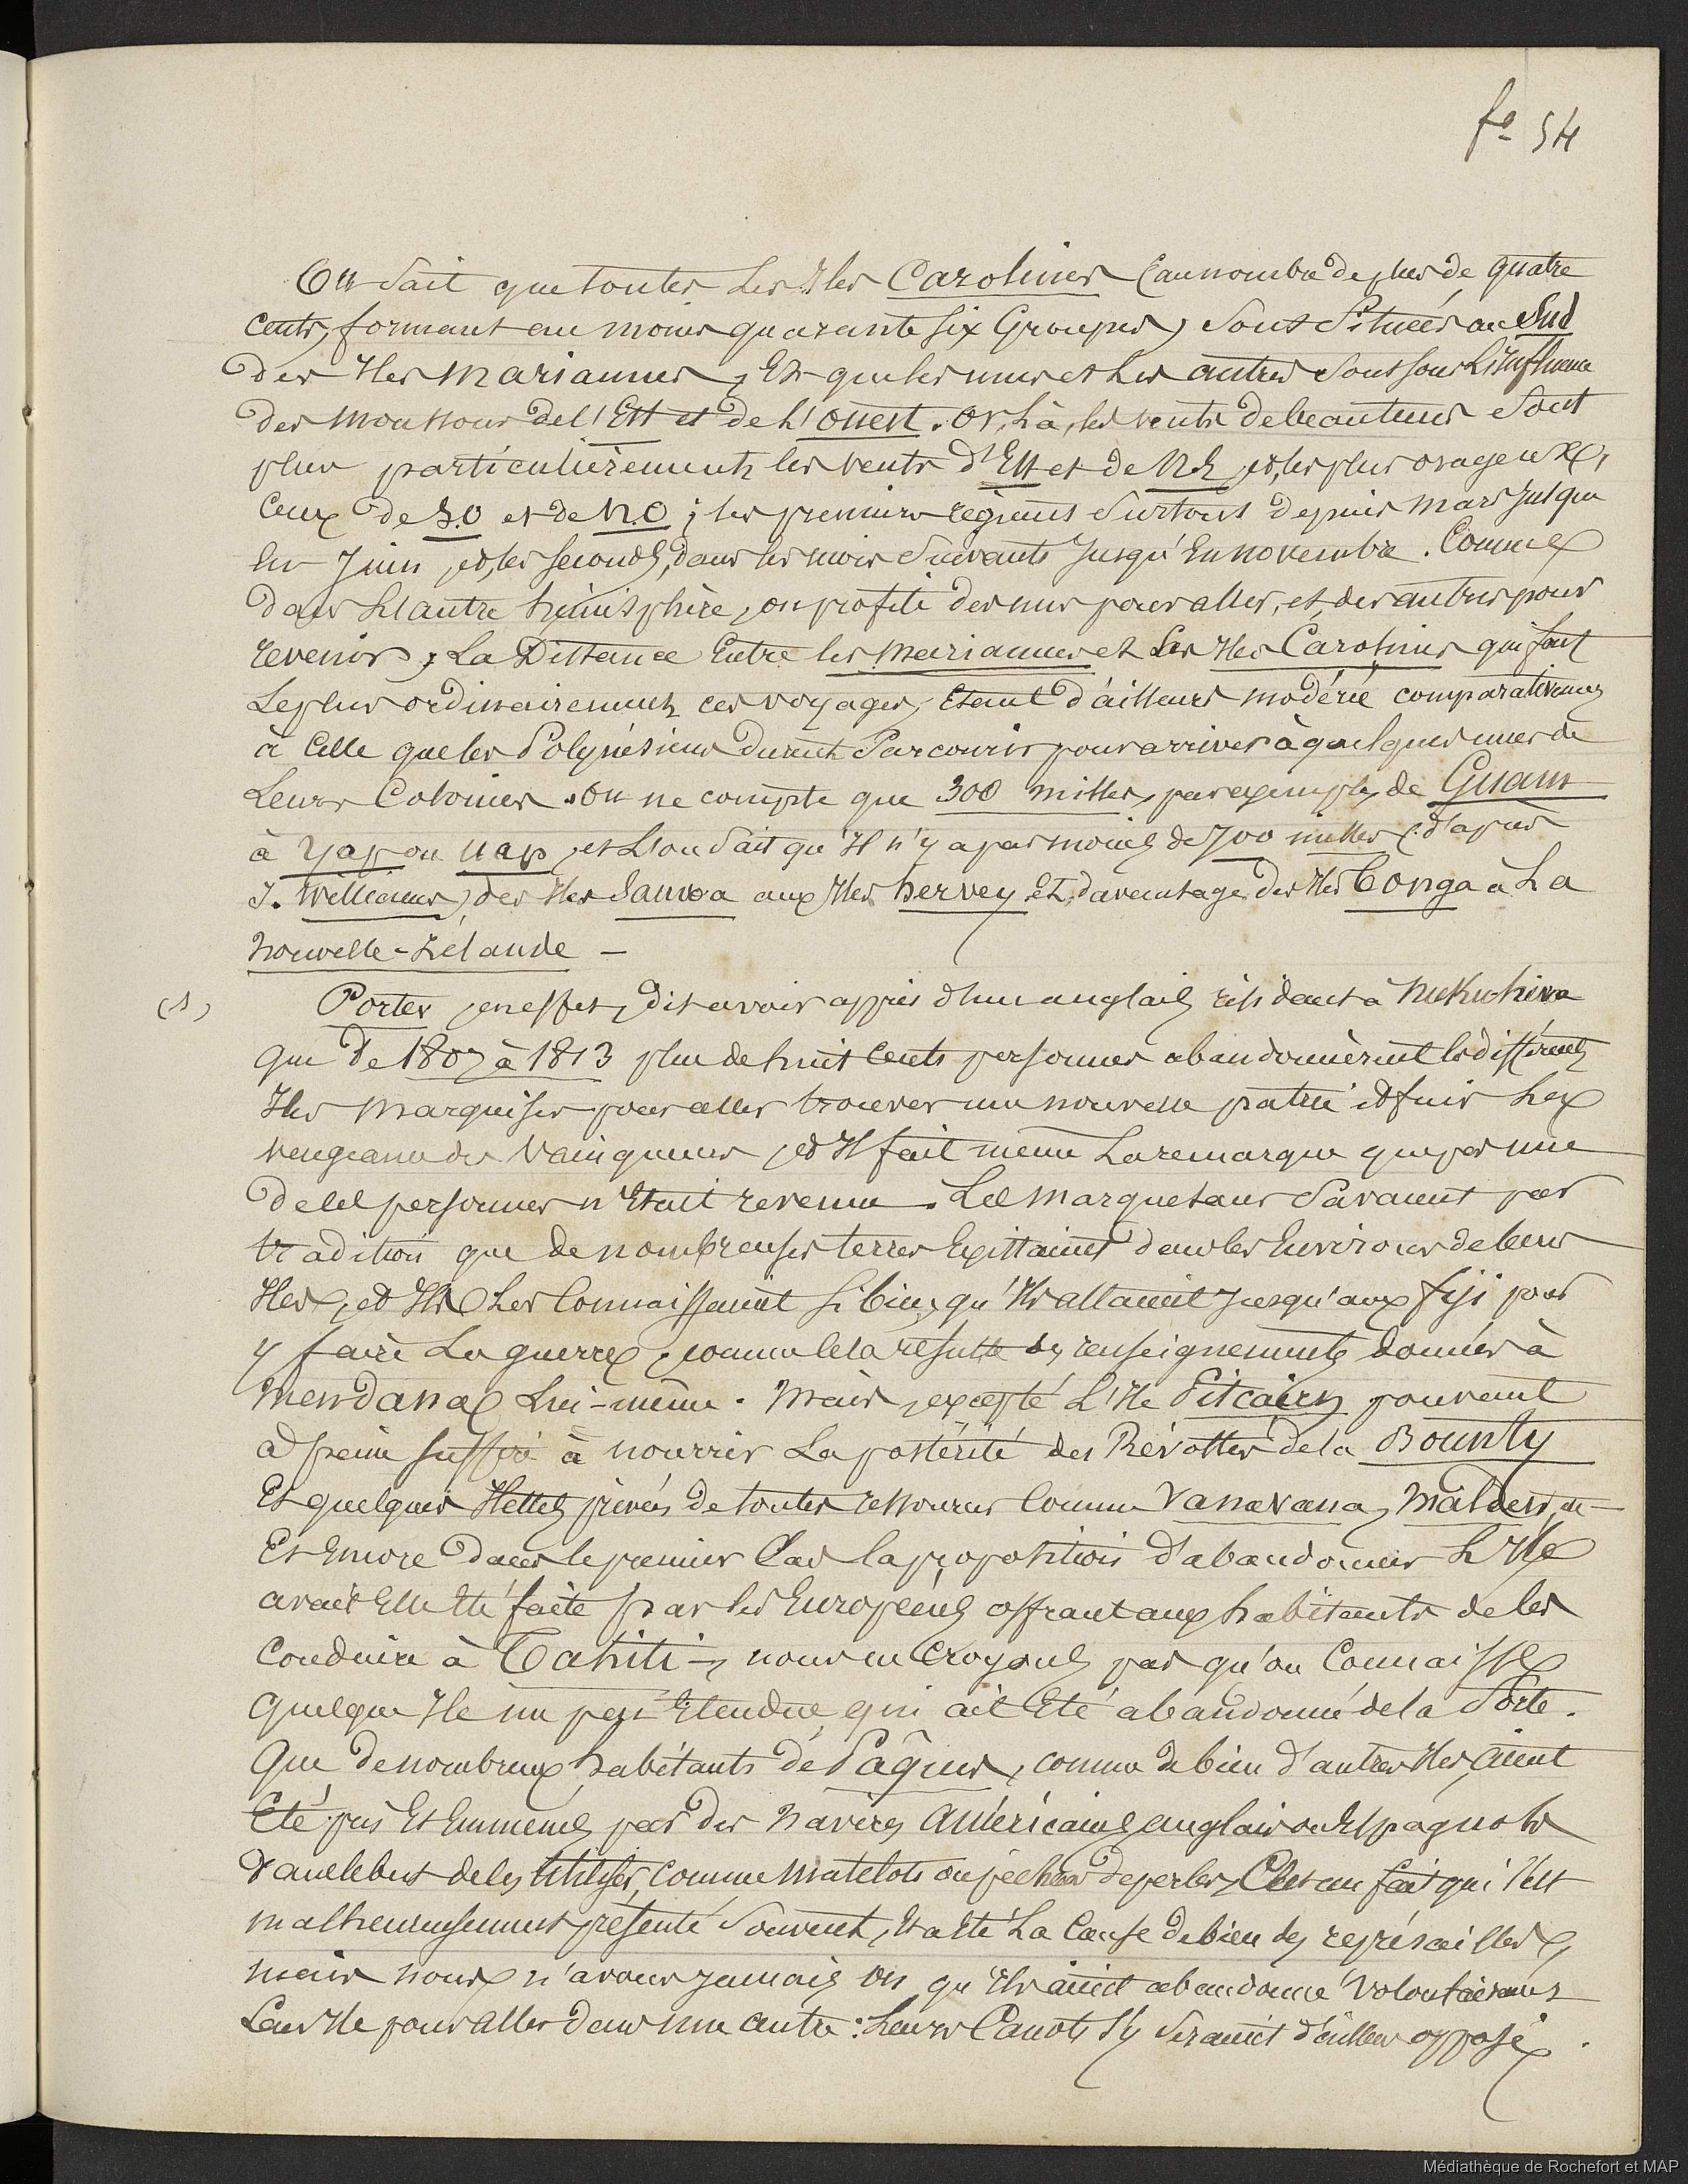 fo 54
On Sait que toutes Les Iles Carolines (au nombre de plus de quatre
Cents, formant au moins quarante six Groupes) Sont Situées au Sud
des Iles Mariannes, Et que les unes et Les autres Sont sous L'Influence
des Moussons de l'Est et de L'ouest. Or, Là, les vents de beau temps Sont
plus particulièrement les vents d'Est et de N.E, et, les plus orageux,
Ceux de S.O et de N.O ; les premiers règnent Surtout depuis Mars Jusque
en Juin, et, les seconds, dans les mois Suivants Jusqu'En novembre. Comme
dans L'autre hémisphère, on profite des uns pour aller, et, des autres pour
revenir, La Distance Entre les Mariannes et Les Iles Carolines qui font
Le plus ordinairement ces voyages, Etant d'ailleurs modérée comparativement
à Celle que les Polynésiens durent Parcourir pour arriver à quelques unes de
Leurs Colonies. On ne compte que 300 milles, par exemple, de Guam
à Yap ou Uap, et L'on Sait qu'Il n'y a pas moins de 700 milles (d'après
J. Williams) des Iles Samoa aux Iles hervey Et, davantage des Iles Tonga à La
Nouvelle-Zélande -
(1) Porter, en effet, dit avoir appris d'un anglais résidant à Nukuhiva
que de 1807 à 1813 plus de huit Cents personnes abandonnèrent les différentes
Iles Marquises pour aller trouver une nouvelle patrie et fuir La
vengeance des Vainqueurs, et Il fait même La remarque que pas une
de ces personnes n'Etait revenue. Les Marquesans Savaient par
tradition que de nombreuses terres Existaient dans les Environs de leurs
Iles, et Ils Les Connaissaient Si bien, qu'Ils allaient Jusqu'aux fiji pour
y faire La guerre, comme cela résulte des renseignements donnés à
Mendana Lui-même. Mais, excepté L'Ile Pitcairn pouvant
à peine suffire à nourrir La postérité des Révoltés de la Bounty
Et quelques Ilettes privées de toutes ressources Comme Vanavana, Malden, etc
Et Encore dans le premier Cas la proposition d'abandonner L'Ile
avait Elle Eté faite par les Européens offrant aux habitants de les
Conduire à Tahiti -, nous ne Croyons pas qu'on Connaisse
quelque Ile un peu Etendue qui ait Eté abandonnée de la Sorte.
Que de nombreux habitants de Pâques, comme de bien d'autres Iles, aient
Eté pris Et Emmenés par des Navires Américains, anglais ou Espagnols
dans le but de les Utiliser Comme Matelots ou pêcheurs de perles, C'est un fait qui s'est
malheureusement présenté Souvent, Et a Eté La Cause de bien des représailles,
mais nous n'avons Jamais vu qu'Ils aient abandonné Volontairement
Leur Ile pour aller dans une autre : Leurs Canots s'y Seraient d'ailleurs opposé.
Médiathèque de Rochefort et MAP